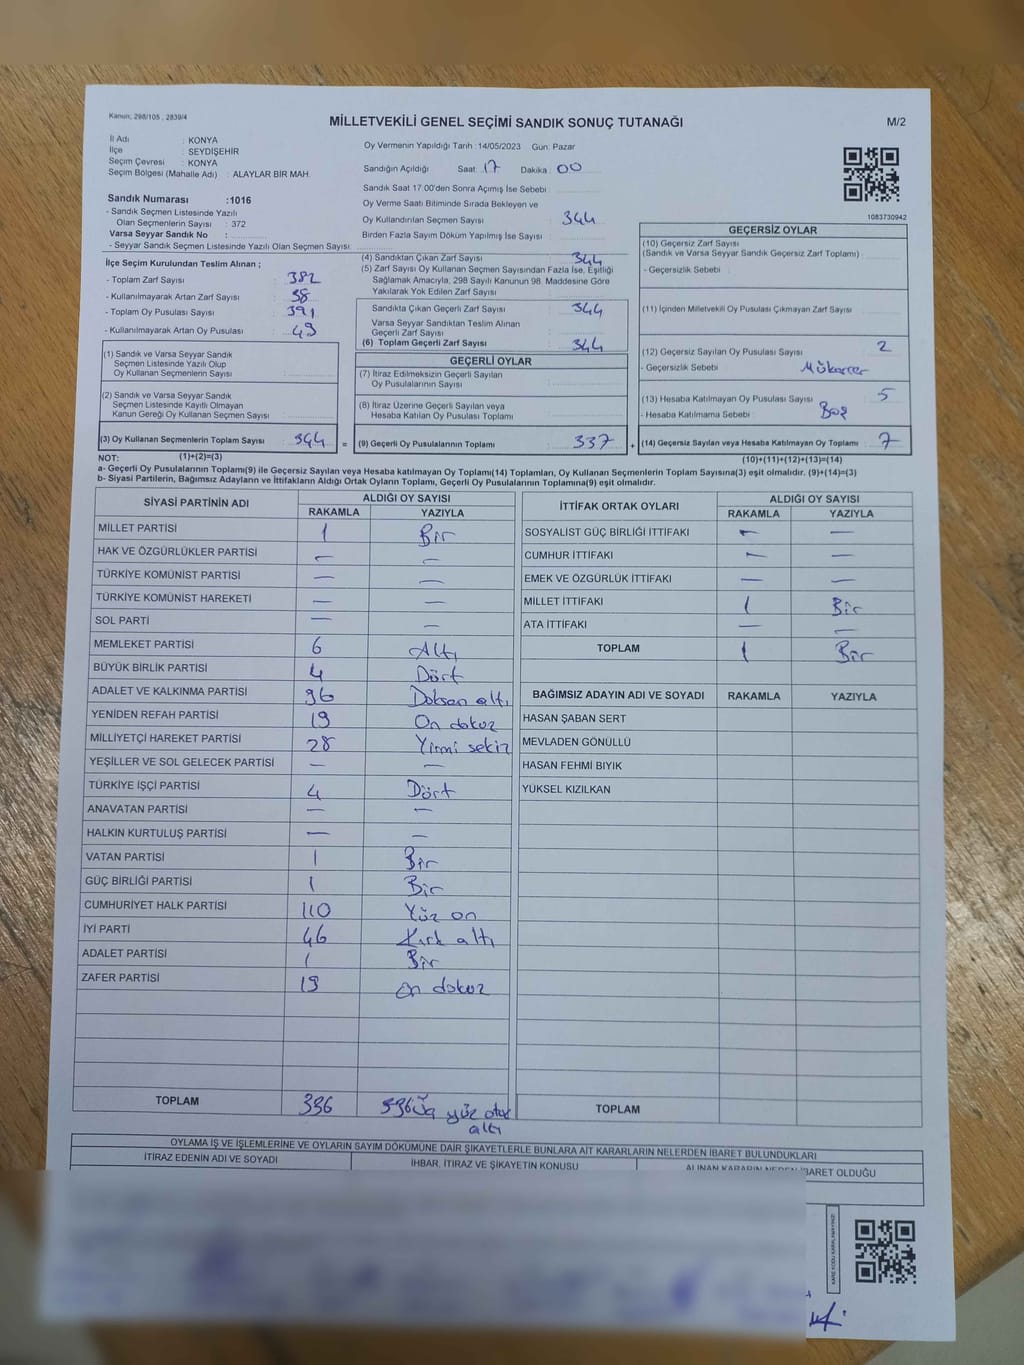 Kanun, 298/105 , 2839/4
MİLLETVEKİLİ GENEL SEÇİMİ SANDIK SONUÇ TUTANAĞI
M/2
İl Adı : KONYA
İlçe : SEYDİŞEHİR
Seçim Çevresi : KONYA
Seçim Bölgesi (Mahalle Adı) : ALAYLAR BİR MAH.
Sandık Numarası :1016
- Sandık Seçmen Listesinde Yazılı
Olan Seçmenlerin Sayısı : 372
Varsa Seyyar Sandık No :
- Seyyar Sandık Seçmen Listesinde Yazılı Olan Seçmen Sayısı:
İlçe Seçim Kurulundan Teslim Alınan ;
- Toplam Zarf Sayısı : 382
- Kullanılmayarak Artan Zarf Sayısı : 38
- Toplam Oy Pusulası Sayısı : 391
- Kullanılmayarak Artan Oy Pusulası : 49
(1) Sandık ve Varsa Seyyar Sandık
Seçmen Listesinde Yazılı Olup
Oy Kullanan Seçmenlerin Sayısı :
(2) Sandık ve Varsa Seyyar Sandık
Seçmen Listesinde Kayıtlı Olmayan
Kanun Gereği Oy Kullanan Seçmen Sayısı :
(3) Oy Kullanan Seçmenlerin Toplam Sayısı : 344 =
Oy Vermenin Yapıldığı Tarih :14/05/2023 Gün: Pazar
Sandığın Açıldığı Saat: 17 Dakika : 00
Sandık Saat 17.00'den Sonra Açımış İse Sebebi :
Oy Verme Saati Bitiminde Sırada Bekleyen ve
Oy Kullandırılan Seçmen Sayısı : 344
Birden Fazla Sayım Döküm Yapılmış İse Sayısı :
(4) Sandıktan Çıkan Zarf Sayısı : 344
(5) Zarf Sayısı Oy Kullanan Seçmen Sayısından Fazla İse, Eşitliği
Sağlamak Amacıyla, 298 Sayılı Kanunun 98. Maddesine Göre
Yakılarak Yok Edilen Zarf Sayısı :
Sandıkta Çıkan Geçerli Zarf Sayısı : 344
Varsa Seyyar Sandıktan Teslim Alınan
Geçerli Zarf Sayısı :
(6) Toplam Geçerli Zarf Sayısı : 344
GEÇERLİ OYLAR
(7) İtiraz Edilmeksizin Geçerli Sayılan
Oy Pusulalarının Sayısı :
(8) İtiraz Üzerine Geçerli Sayılan veya
Hesaba Katılan Oy Pusulaları Toplamı :
(9) Geçerli Oy Pusulalarının Toplamı : 337 +
1083730942
GEÇERSİZ OYLAR
(10) Geçersiz Zarf Sayısı
(Sandık ve Varsa Seyyar Sandık Geçersiz Zarf Toplamı) :
- Geçersizlik Sebebi :
(11) İçinden Milletvekili Oy Pusulası Çıkmayan Zarf Sayısı :
(12) Geçersiz Sayılan Oy Pusulası Sayısı : 2
- Geçersizlik Sebebi : Mükerrer
(13) Hesaba Katılmayan Oy Pusulası Sayısı : 5
- Hesaba Katılmama Sebebi : Boş
(14) Geçersiz Sayılan veya Hesaba Katılmayan Oy Toplamı : 7
NOT: (1)+(2)=(3) (10)+(11)+(12)+(13)=(14)
a- Geçerli Oy Pusulalarının Toplamı(9) ile Geçersiz Sayılan veya Hesaba katılmayan Oy Toplamı(14) Toplamları, Oy Kullanan Seçmenlerin Toplam Sayısına(3) eşit olmalıdır. (9)+(14)=(3)
b- Siyasi Partilerin, Bağımsız Adayların ve İttifakların Aldığı Ortak Oyların Toplamı, Geçerli Oy Pusulalarının Toplamına(9) eşit olmalıdır.
SİYASİ PARTİNİN ADI ALDIĞI OY SAYISI
RAKAMLA YAZIYLA
MİLLET PARTİSİ 1 Bir
HAK VE ÖZGÜRLÜKLER PARTİSİ — —
TÜRKİYE KOMÜNİST PARTİSİ — —
TÜRKİYE KOMÜNİST HAREKETİ — —
SOL PARTİ — —
MEMLEKET PARTİSİ 6 Altı
BÜYÜK BİRLİK PARTİSİ 4 Dört
ADALET VE KALKINMA PARTİSİ 96 Doksan altı
YENİDEN REFAH PARTİSİ 19 On dokuz
MİLLİYETÇİ HAREKET PARTİSİ 28 Yirmi sekiz
YEŞİLLER VE SOL GELECEK PARTİSİ — —
TÜRKİYE İŞÇİ PARTİSİ 4 Dört
ANAVATAN PARTİSİ — —
HALKIN KURTULUŞ PARTİSİ — —
VATAN PARTİSİ 1 Bir
GÜÇ BİRLİĞİ PARTİSİ 1 Bir
CUMHURİYET HALK PARTİSİ 110 Yüz on
İYİ PARTİ 46 Kırk altı
ADALET PARTİSİ 1 Bir
ZAFER PARTİSİ 19 On dokuz
TOPLAM 336 yüz otuz
altı
İTTİFAK ORTAK OYLARI ALDIĞI OY SAYISI
RAKAMLA YAZIYLA
SOSYALİST GÜÇ BİRLİĞİ İTTİFAKI — —
CUMHUR İTTİFAKI — —
EMEK VE ÖZGÜRLÜK İTTİFAKI — —
MİLLET İTTİFAKI 1 Bir
ATA İTTİFAKI — —
TOPLAM 1 Bir
BAĞIMSIZ ADAYIN ADI VE SOYADI RAKAMLA YAZIYLA
HASAN ŞABAN SERT
MEVLADEN GÖNÜLLÜ
HASAN FEHMİ BIYIK
YÜKSEL KIZILKAN
TOPLAM
OYLAMA İŞ VE İŞLEMLERİNE VE OYLARIN SAYIM DÖKÜMÜNE DAİR ŞİKAYETLERLE BUNLARA AİT KARARLARIN NELERDEN İBARET BULUNDUKLARI
İTİRAZ EDENİN ADI VE SOYADI İHBAR, İTİRAZ VE ŞİKAYETİN KONUSU ALINAN KARARIN NEDEN İBARET OLDUĞU